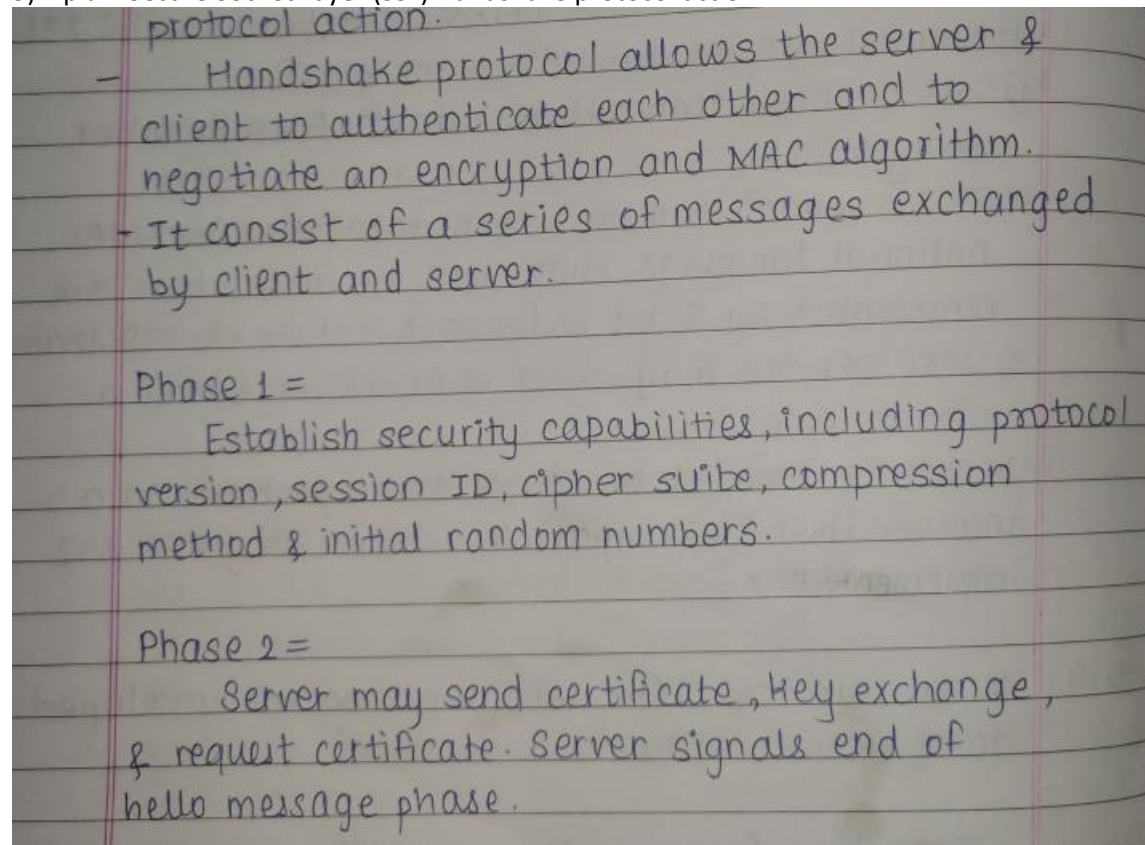 protocol action.
- Handshake protocol allows the server &
client to authenticate each other and to
negotiate an encryption and MAC algorithm.
- It consist of a series of messages exchanged
by client and server.
Phase 1 =
Establish security capabilities, including protocol
version, session ID, cipher suite, compression
method & initial random numbers.
Phase 2 =
Server may send certificate, key exchange,
& request certificate. Server signals end of
hello message phase.